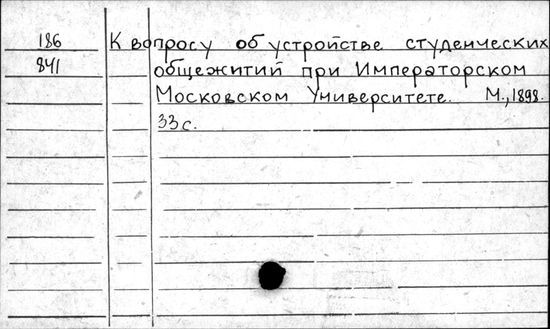 186 К вопросу об устройстве студенческих
841 общежитий при Императорском
Московском Университете. М., 1898.
33 с.